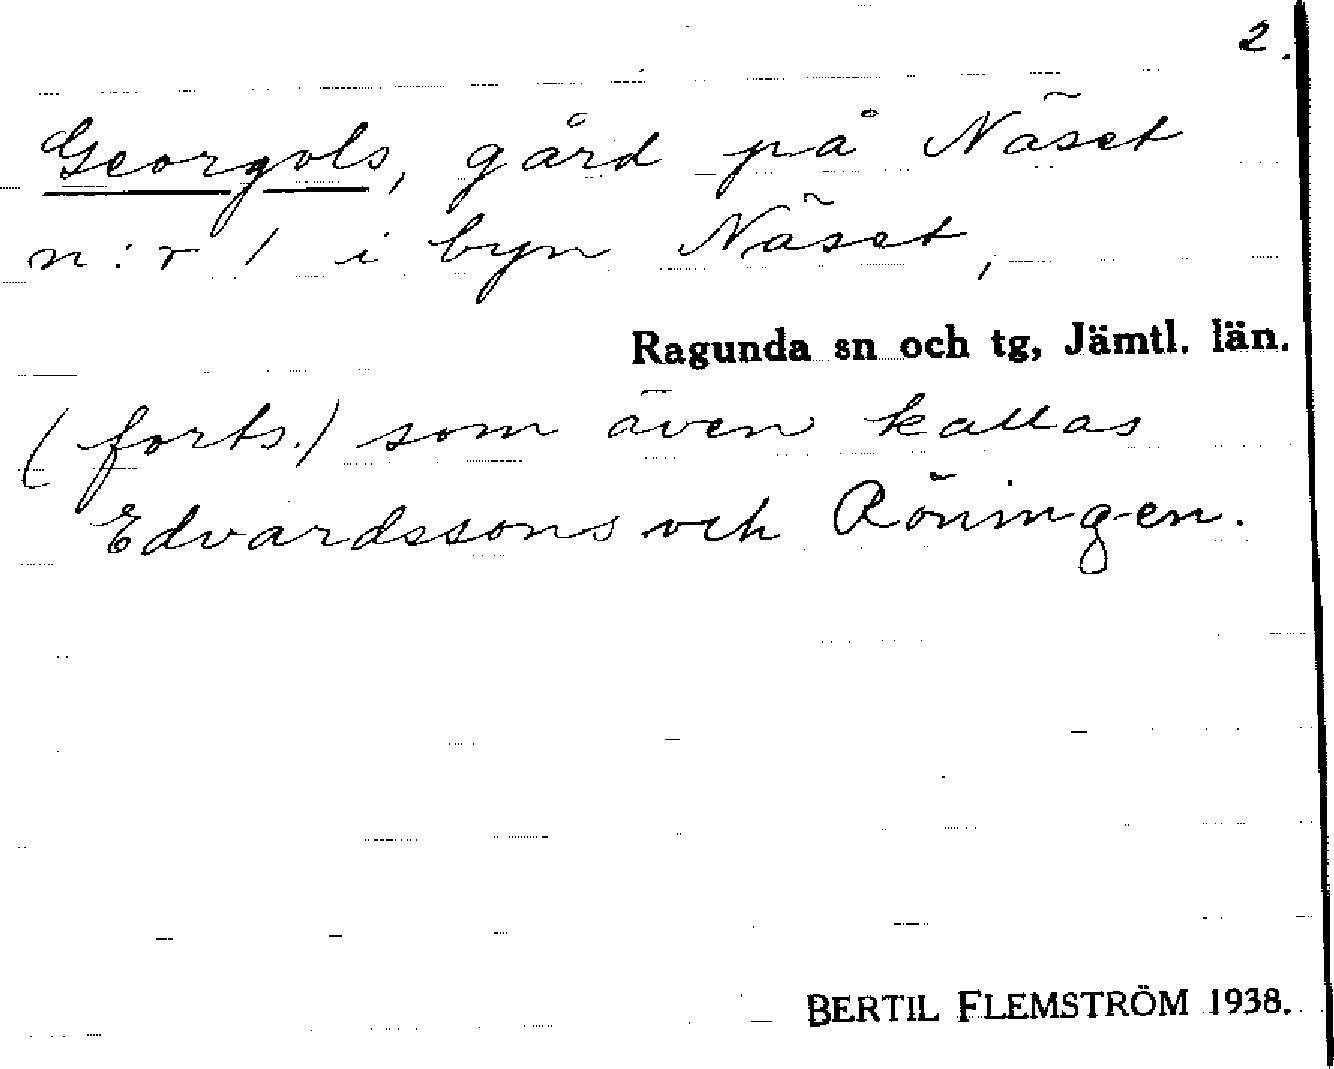 2.
Georgols, gård på Näset
n:r 1 i byn Näset,
Ragunda sn och tg, Jämtl. län.
(forts.) som även kallas
Edvardssons och Röningen.
BERTIL FLEMSTRÖM 1938.